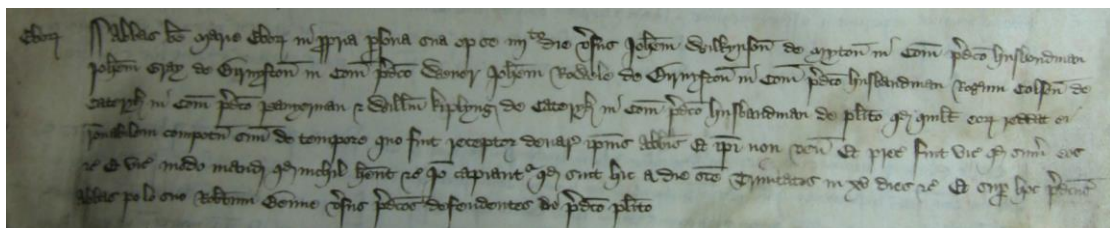 Ebor Abbas be Marie Ebor in ppria psona sua op se iiij die vsus Johem Wilkynson de Myton in Com pdco husbondman
Johem Gray de Grymston in Com pdco Wever Johem Rodele de Grymston in Com pdco husbandman Rogum Colson de
Cateryk in Com pdco panyerman & Willm Kiplyng de Cateryk in Com pdco husbandman de plito qd quilt eor reddat ei
ronabilem compotu suu de tempore quo fuit receptor denar ipius Abbis Et ipi non ven Et prec fuit vic qd sum eos
&c Et vic modo mand qd nichil hent &c Io capiant qd sint hic a die sce Trinitatis in xv dies &c Et sup hoc pdcus
Abbas po lo suo Robtum vsus pdcos defendentes de pdco plito